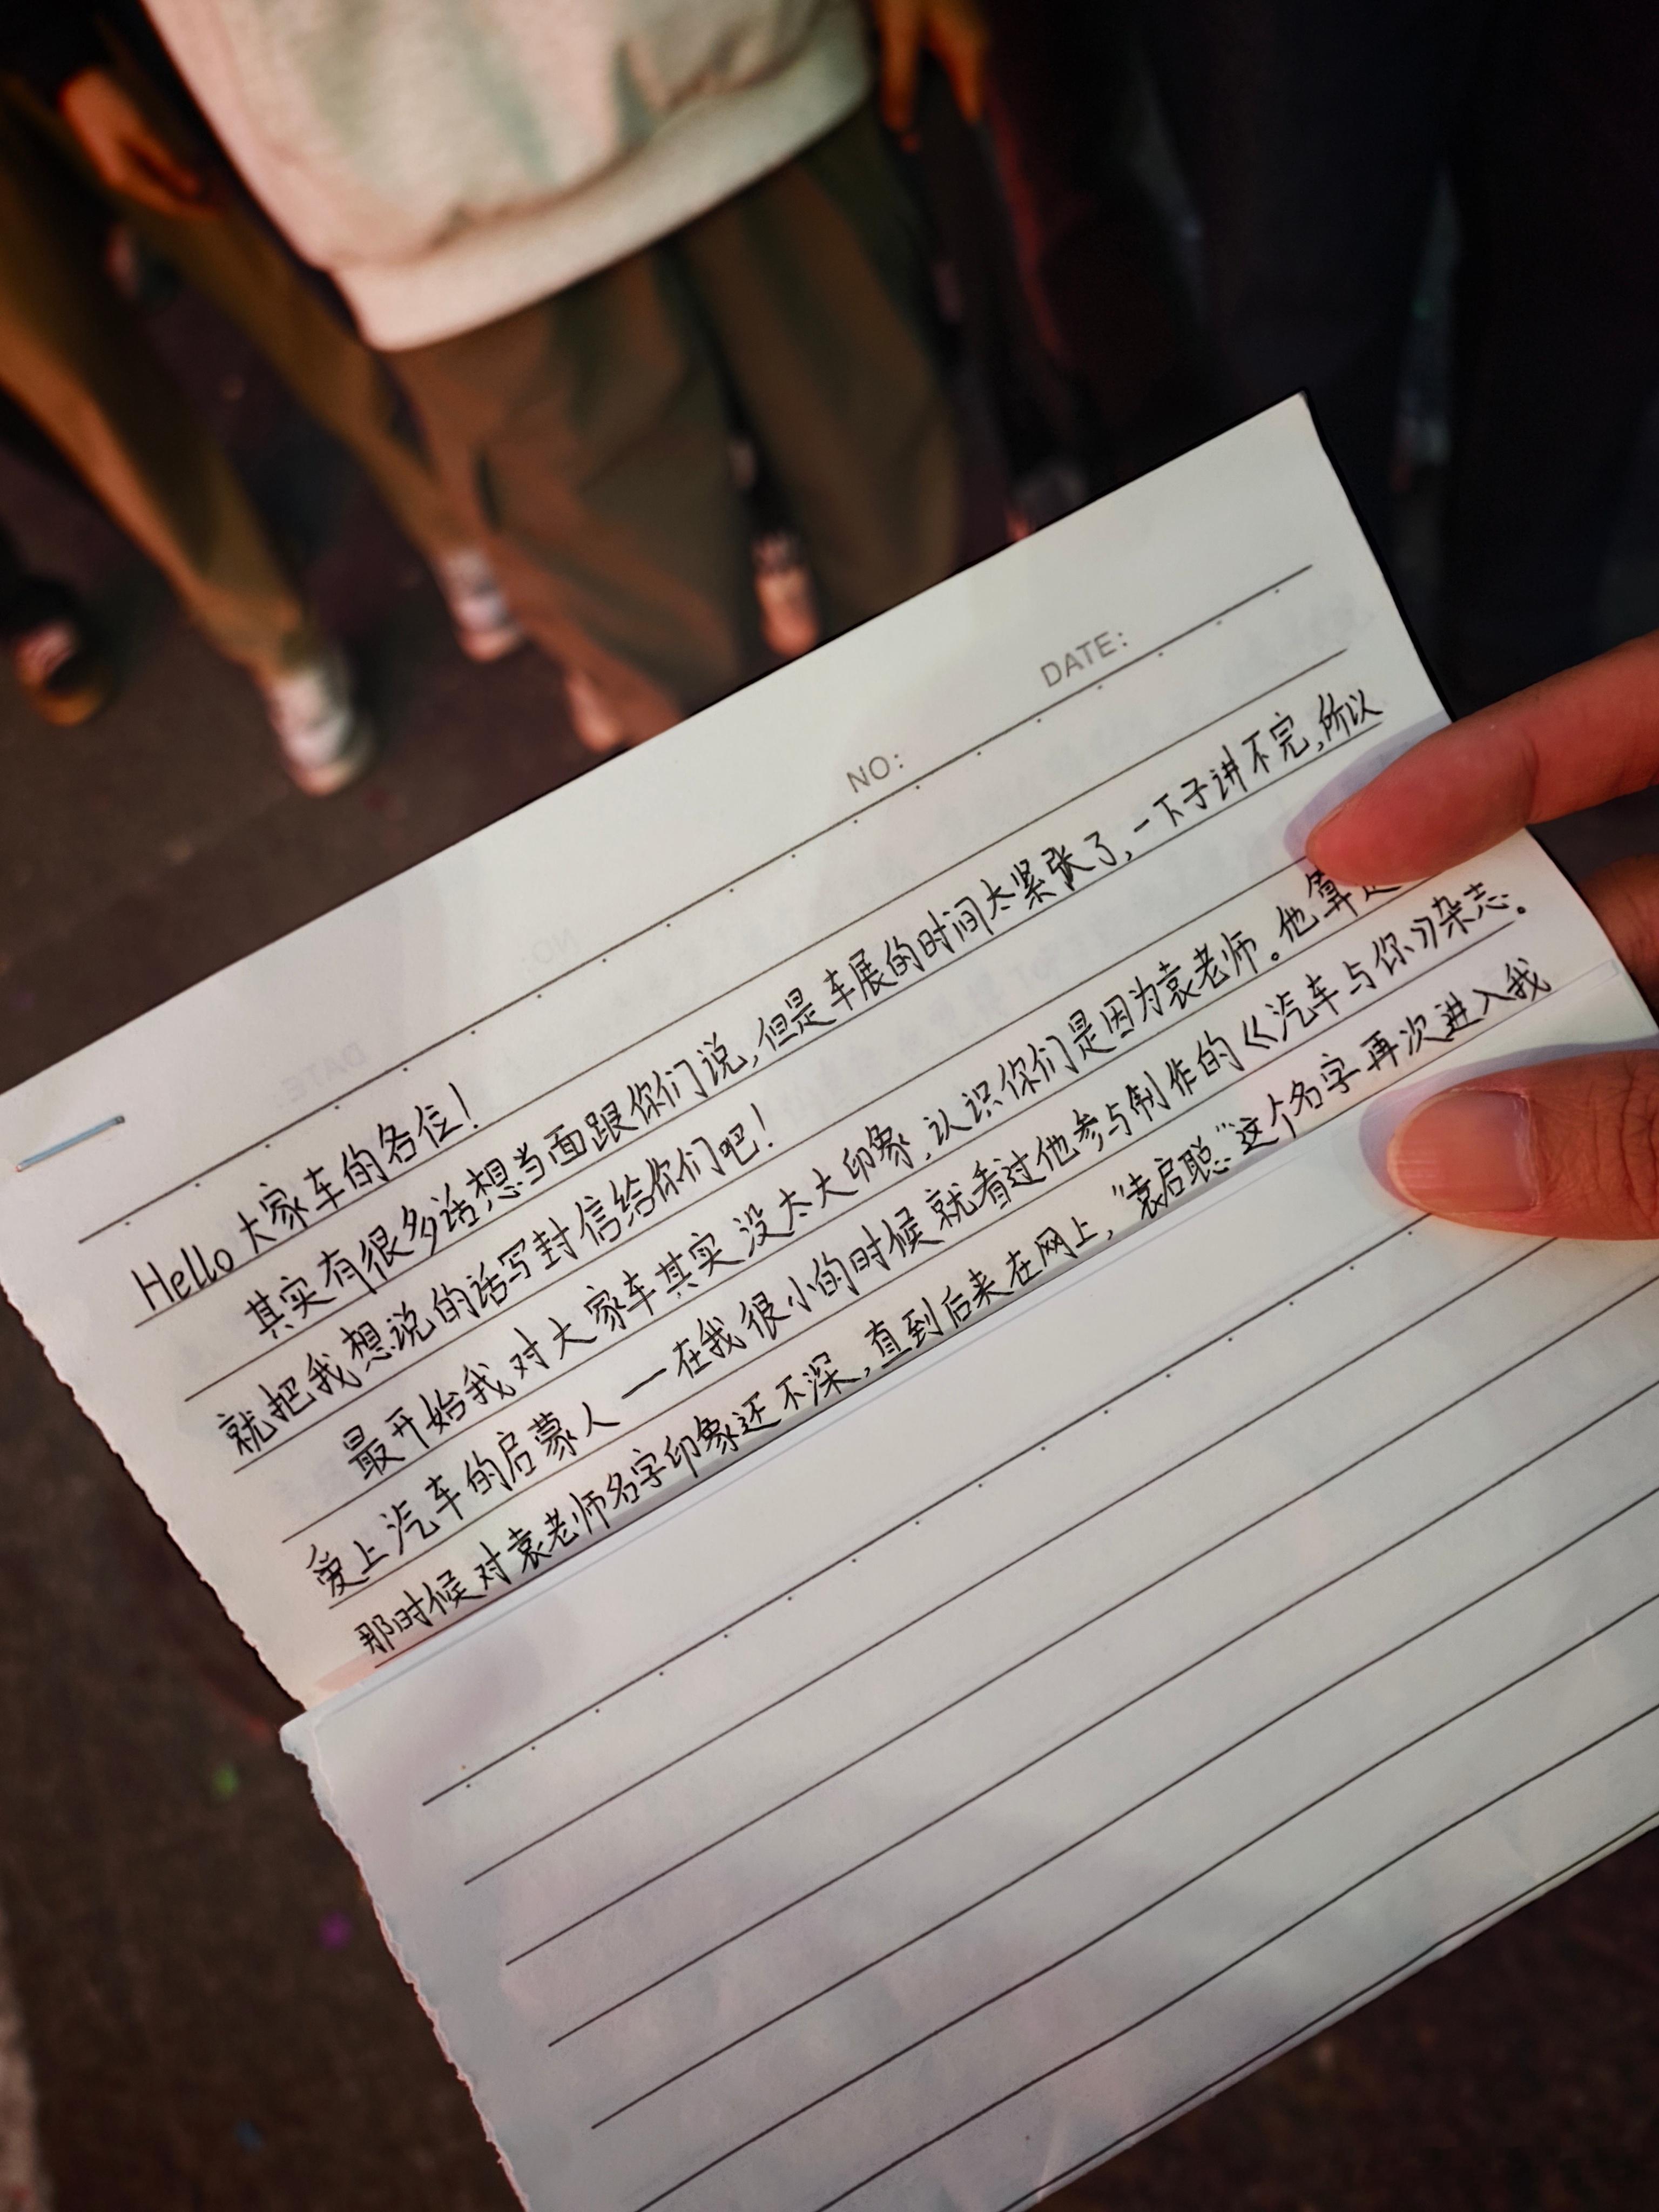 NO: DATE:
Hello 大家车的各位!
其实有很多话想当面跟你们说,但是车展的时间太紧张了,一下子讲不完,所以
就把我想说的话写封信给你们吧!
最开始我对大家车其实没太大印象,认识你们是因为袁老师。他算是
爱上汽车的启蒙人—在我很小的时候就看过他参与制作的《汽车与你》杂志。
那时候对袁老师名字印象还不深,直到后来在网上,"袁启聪"这个名字再次进入我